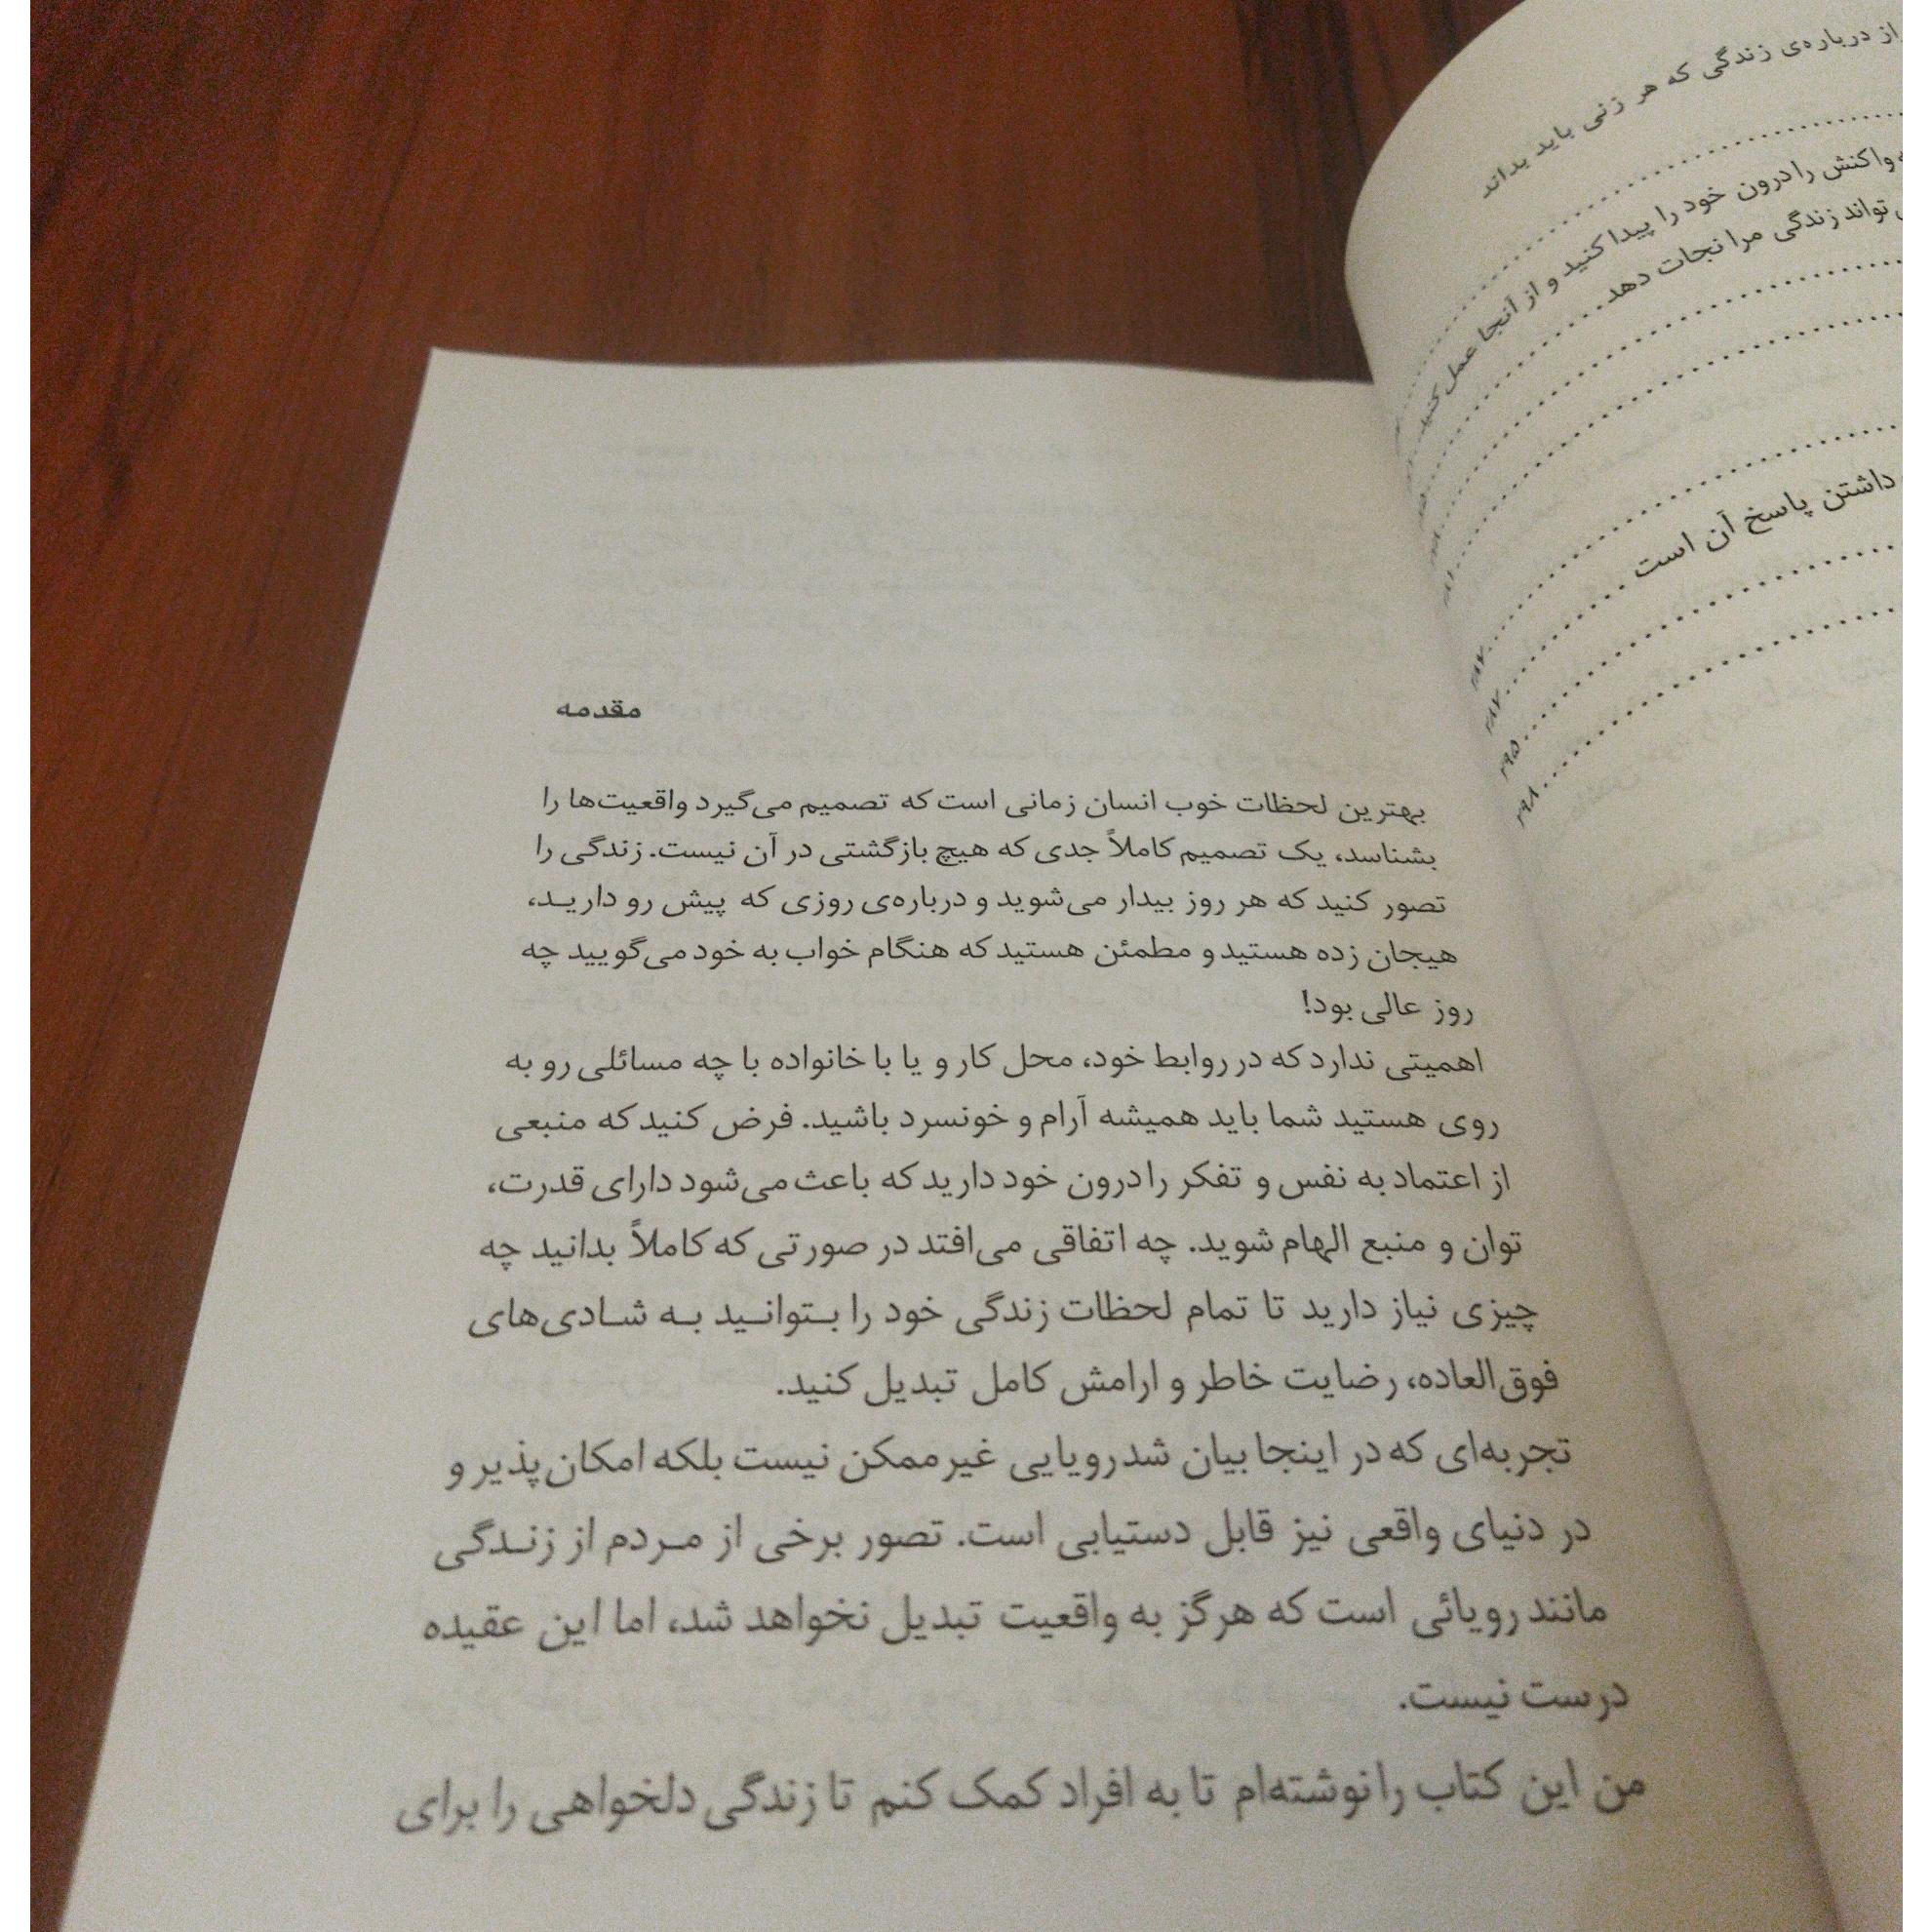 از درباره‌ی زندگی که هر زنی باید بداند
واکنش را درون خود را پیدا کنید و از آنجا عمل کنید
تواند زندگی مرا نجات دهد
داشتن پاسخ آن است
مقدمه
بهترین لحظات خوب انسان زمانی است که تصمیم می‌گیرد واقعیت‌ها را
بشناسد، یک تصمیم کاملاً جدی که هیچ بازگشتی در آن نیست. زندگی را
تصور کنید که هر روز بیدار می‌شوید و درباره‌ی روزی که پیش رو دارید،
هیجان زده هستید و مطمئن هستید که هنگام خواب به خود می‌گویید چه
روز عالی بود!
اهمیتی ندارد که در روابط خود، محل کار و یا با خانواده با چه مسائلی رو به
روی هستید شما باید همیشه آرام و خونسرد باشید. فرض کنید که منبعی
از اعتماد به نفس و تفکر را درون خود دارید که باعث می‌شود دارای قدرت،
توان و منبع الهام شوید. چه اتفاقی می‌افتد در صورتی که کاملاً بدانید چه
چیزی نیاز دارید تا تمام لحظات زندگی خود را بتوانید به شادی‌های
فوق‌العاده، رضایت خاطر و ارامش کامل تبدیل کنید.
تجربه‌ای که در اینجا بیان شد رویایی غیرممکن نیست بلکه امکان‌پذیر و
در دنیای واقعی نیز قابل دستیابی است. تصور برخی از مردم از زندگی
مانند رویائی است که هرگز به واقعیت تبدیل نخواهد شد، اما این عقیده
درست نیست.
من این کتاب را نوشته‌ام تا به افراد کمک کنم تا زندگی دلخواهی را برای